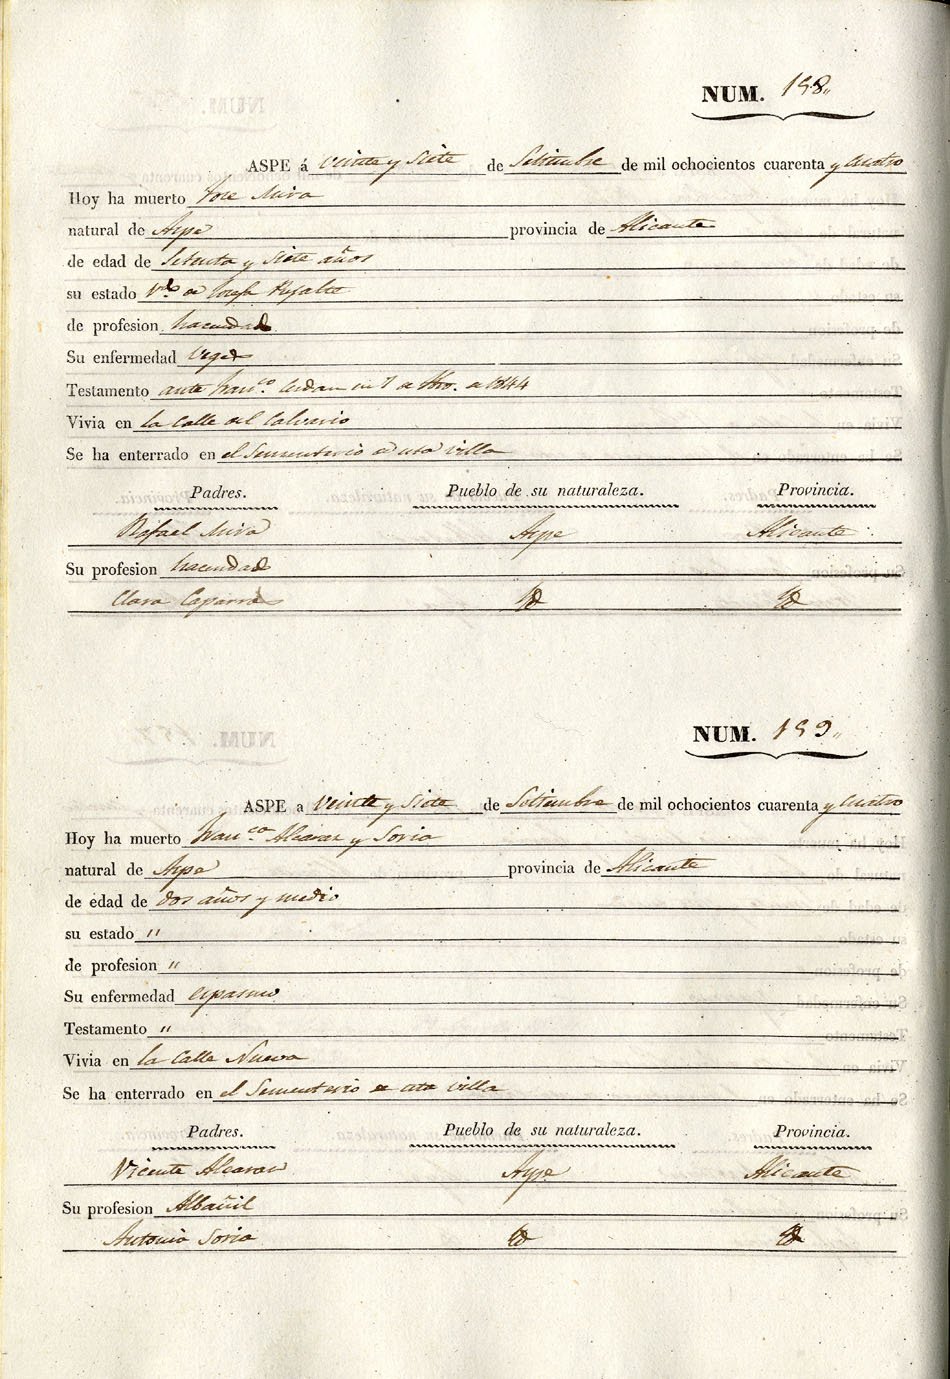 NUM. 158,,
ASPE á veinte y Siete de Setiembre de mil ochocientos cuarenta y cuatro
Hoy ha muerto Jose Mira
natural de Aspe provincia de Alicante
de edad de Setenta y Siete años
su estado Vdo de Josefa
de profesion hacendado
Su enfermedad
Testamento ante Franco. en 7 de de 1844
Vivia en la Calle del Calvario
Se ha enterrado en el Sementerio de esta villa
Padres. Pueblo de su naturaleza. Provincia.
Rafael Mira Aspe Alicante
Su profesion hacendado
Clara Caparros Id Id
NUM. 159,,
ASPE a veinte y Siete de Setiembre de mil ochocientos cuarenta y cuatro
Hoy ha muerto Franco Alcaraz y Soria
natural de Aspe provincia de Alicante
de edad de dos años y medio
su estado "
de profesion "
Su enfermedad espasmo
Testamento "
Vivia en la Calle Nueva
Se ha enterrado en el Sementerio de esta villa
Padres. Pueblo de su naturaleza. Provincia.
Vicente Alcaraz Aspe Alicante
Su profesion Albañil
Antonia Soria Id Id